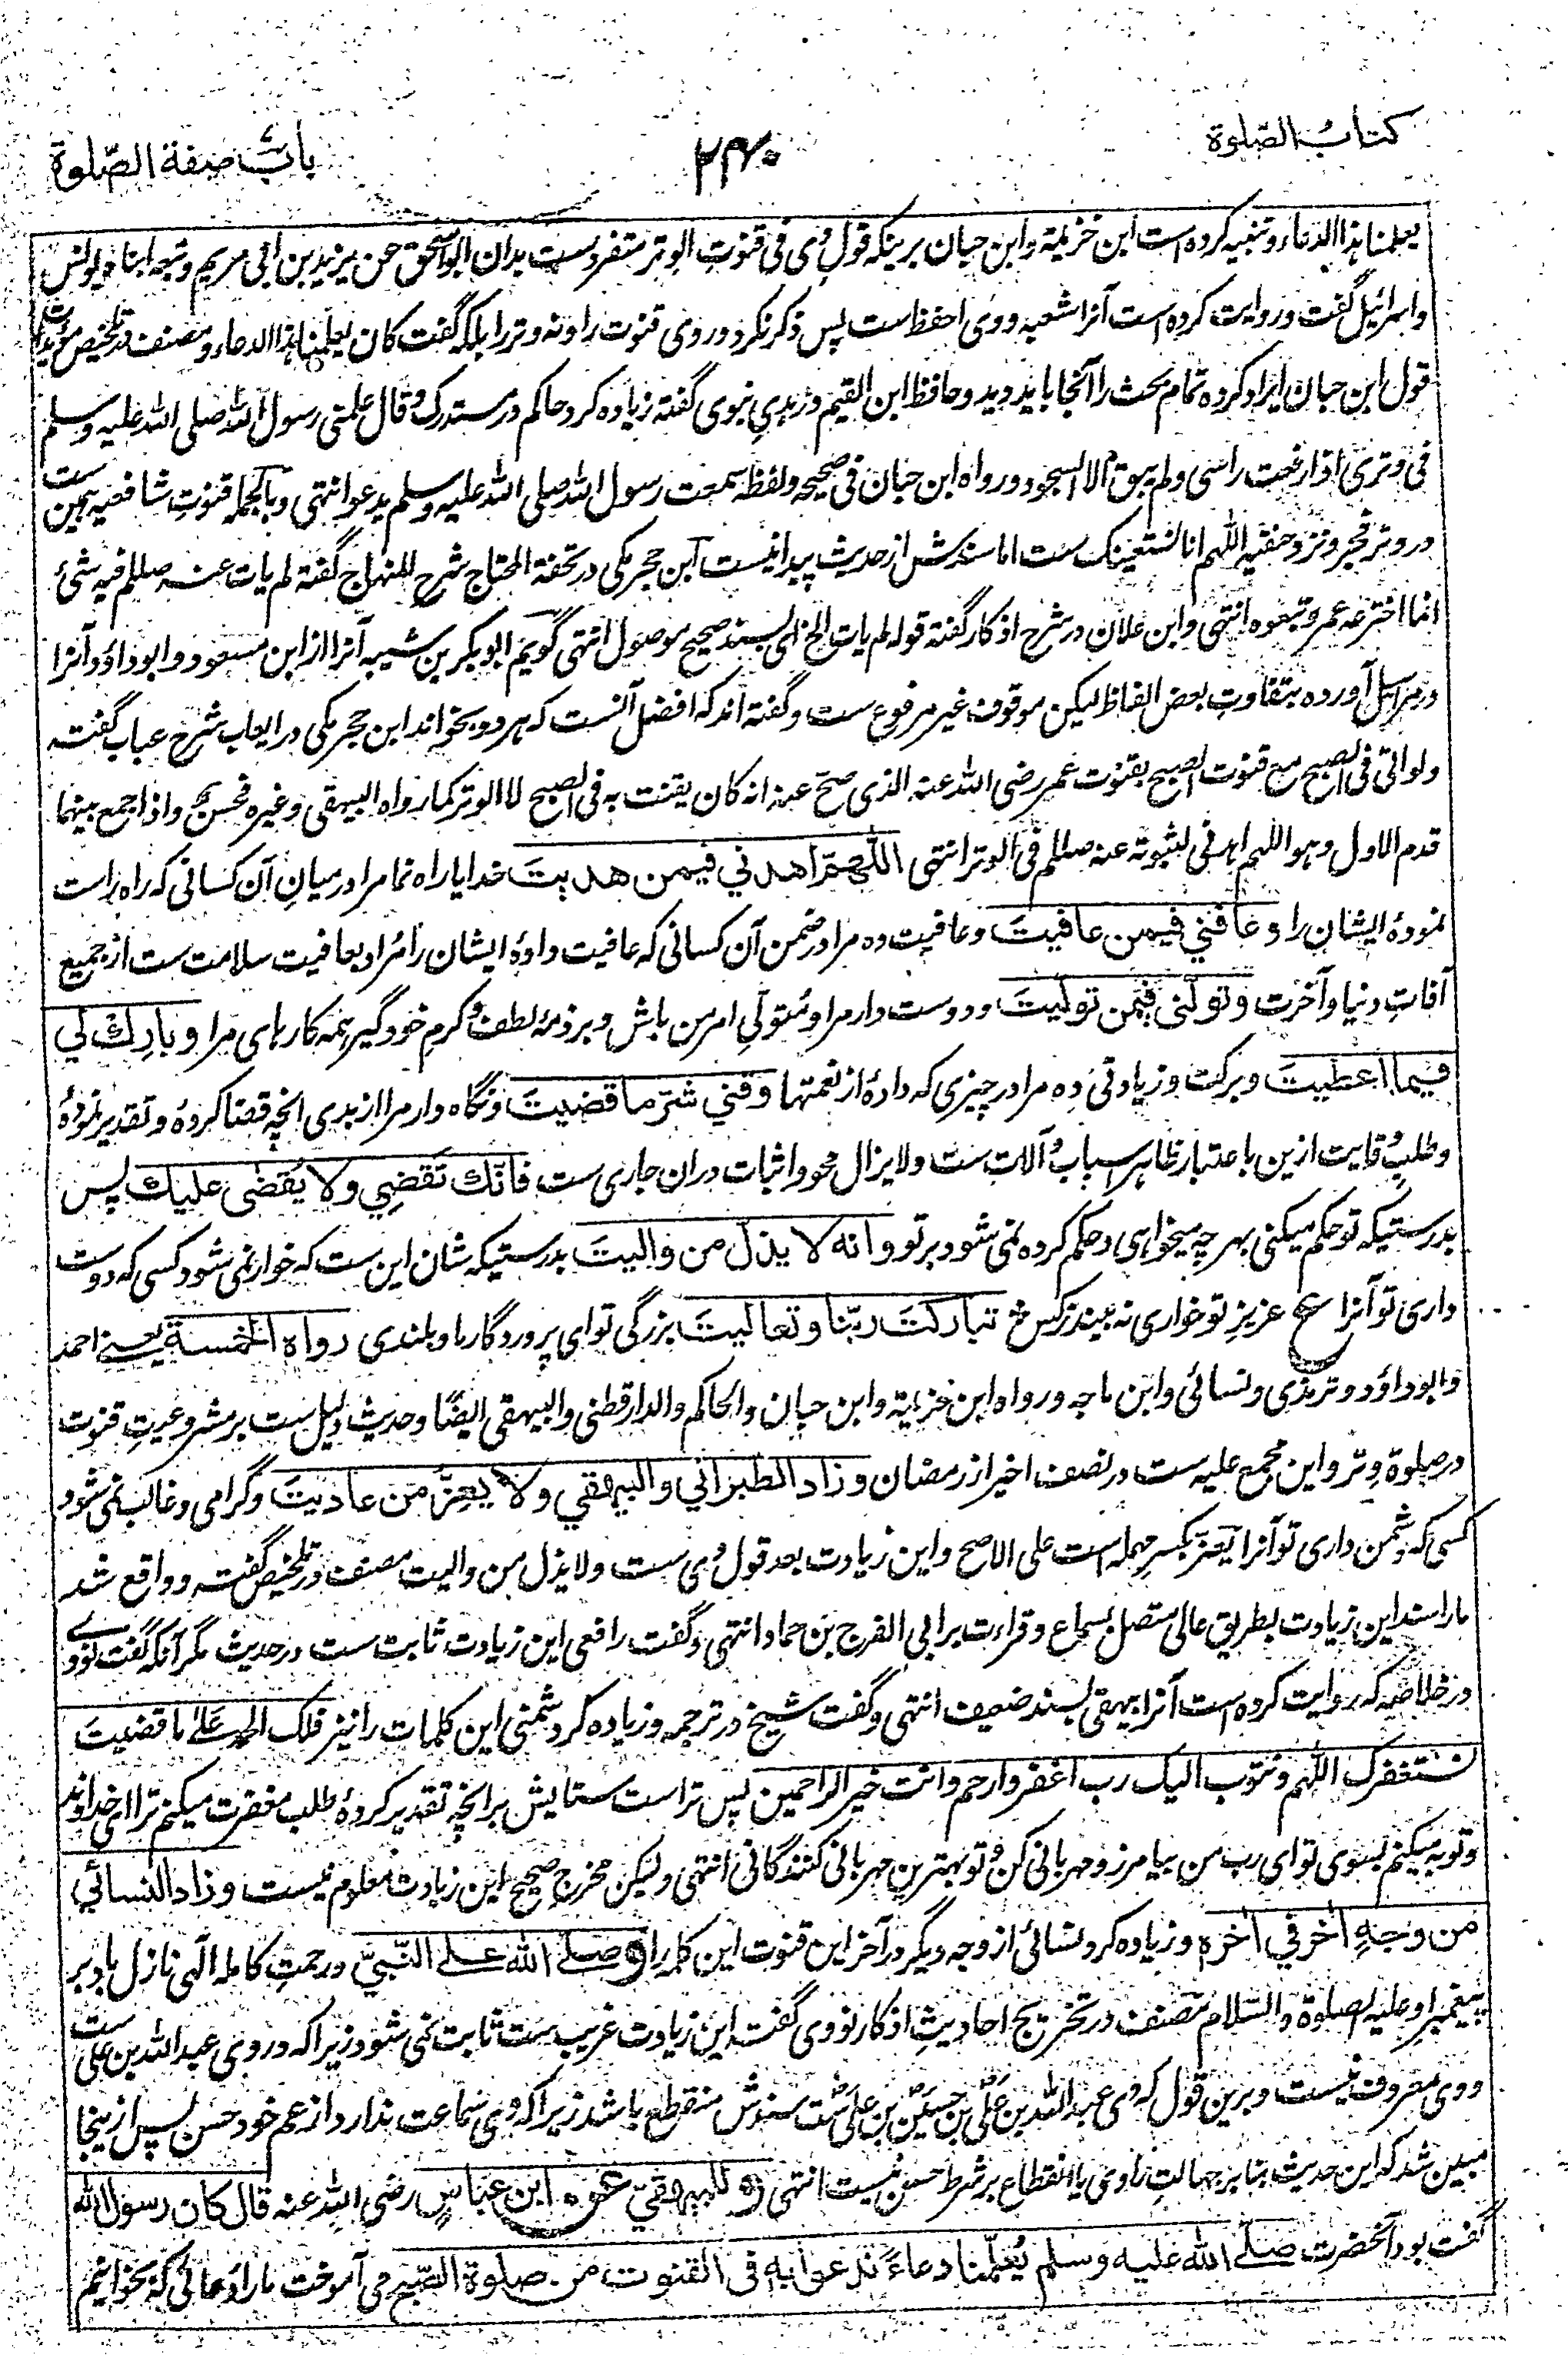 كتاب الصّلوة
٢٤٠
باب صفة الصّلوة
يعلمنا هذا الدعاء و تنبيه کرده است ابن خزيمة و ابن حبان برينکه قول وی فی قنوت الوتر متفردست بدان ابو اسحق عن بريد بن ابی مريم و تبعه ابناه يونس
و اسرائيل گفت و روايت کرده است آنرا شعبه و وی احفظ ست پس ذکر نکرد در وی قنوت را و نه وتر را بلکه گفت کان يعلمنا هذا الدعاء و مصنف در تلخيص مؤيدات
قول ابن حبان ايراد کرده تمام بحث را آنجا بايد ديد و حافظ ابن القيم در هدي نبوی گفته زياده کرد حاکم در مستدرک و قال علمنی رسول الله صلی الله عليه وسلم
فی وتری اذا رفعت راسی ولم يبق الا السجود و رواه ابن حبان فی صحيحه ولفظه سمعت رسول الله صلی الله عليه وسلم يدعو انتهی و بالجمله قنوت شافعيه همين ست
در وتر و فجر و نزد حنفيه اللهم انا نستعينک ست اما سندش از حديث پيدا نيست ابن حجر مکی در تحفة المحتاج شرح المنهاج گفته لم يات عنه صللم فيه شئ
انما اخترعه عمر و تبعوه انتهی و ابن علان در شرح اذکار گفته قوله لم يات الخ ای بسند صحيح موصول انتهی گويم ابو بکر بن شيبه آنرا از ابن مسعود و ابو داؤد آنرا
در مراسيل آورده بتفاوت بعض الفاظ ليکن موقوف غير مرفوع ست و گفته اند که افضل آنست که هر دو بخواند ابن حجر مکی در ايعاب شرح عباب گفته
ولو اتی فی الصبح مع قنوت الصبح بقنوت عمر رضی الله عنه الذی صح عنه انه کان يقنت به فی الصبح لا الوتر کما رواه البيهقی و غيره فحسن و اذا جمع بينهما
قدم الاول و هو اللهم اهدنی لثبوته عنه صللم فی الوتر انتهی اللّٰهمّ اهدني فيمن هديتَ خدايا راه نما مرا در ميان آن کسانی که راه راست
نمودهٔ ايشان را وعافني فيمن عافيتَ و عافيت ده مرا در ضمن آن کسانی که عافيت دادهٔ ايشان را مراد بعافيت سلامت ست از جميع
آفات دنيا و آخرت وتولّنی فيمن تولّيتَ و دوست دار مرا و متولّی امر من باش و بر ذمهٔ لطف و کرم خود گير همه کارهای مرا وبارك لي
فيما اعطيتَ و برکت و زيادتی ده مرا در چيزی که دادهٔ از نعمتها وقني شرّ ما قضيتَ و نگاه دار مرا از بدی انچه قضا کردهٔ و تقدير نمودهٔ
و طلب وقايت ازين باعتبار ظاهر اسباب و آلات ست و لا يزال محو و اثبات دران جاری ست فانّك تَقضِي ولا يُقضٰی عليك پس
بدرستيکه تو حکم ميکنی بهر چه ميخواهی و حکم کرده نمی شود بر تو وانه لا يذلّ من واليتَ بدرستيکه شان اين ست که خوار نمی شود کسی که دوست
داری تو آنرا ع عزيز تو خواری نه بيند ز کس ؞ تبارکتَ ربّنا وتعاليتَ بزرگی تو ای پروردگار ما و بلندی رواه الخمسة يعنے احمد
و ابو داؤد و ترمذی و نسائی و ابن ماجه و رواه ابن خزيمة و ابن حبان و الحاکم و الدارقطنی و البيهقی ايضًا و حديث دليل ست بر مشروعيت قنوت
در صلوة وتر و اين مجمع عليه ست در نصف اخير از رمضان وزاد الطبراني والبيهقي ولا يعزّ من عاديتَ و گرامی و غالب نمی شود
کسی که دشمن داری تو آنرا يعز بکسر مهمله است علی الاصح و اين زيادت بعد قول وی ست ولا يذل من واليت مصنف در تلخيص گفته و واقع شد
مارا سند اين زيادت بطريق عالی متصل بسماع و قراءت بر ابی الفرج بن حماد انتهی و گفت رافعی اين زيادت ثابت ست در حديث مگر آنکه گفت نووے
در خلاصه که روايت کرده است آنرا بيهقی بسند ضعيف انتهی و گفت شيخ در ترجمه و زياده کرد شمنی اين کلمات را نيز فلک الحمد علیٰ ما قضيتَ
نستغفرک اللهم و نتوب اليک رب اغفر و ارحم و انت خير الراحمين پس تراست ستايش بر انچه تقدير کردهٔ طلب مغفرت ميکنم ترا ای خداوند
و توبه ميکنم بسوی تو ای رب من بيامرز و مهربانی کن و تو بهترين مهربانی کنندگانی انتهی و ليکن مخرج صحيح اين زيادت معلوم نيست وزاد النسائي
من وجهٍ اٰخر في اٰخره و زياده کرد نسائی از وجه ديگر در آخر اين قنوت اين کلمه را وصلے اللّٰه علے النّبيّ و رحمت کامله الٰهی نازل باد بر
پيغمبر او عليه الصلوة و السلام مصنف در تخريج احاديث اذکار نووی گفت اين زيادت غريب ست ثابت نمی شود زيرا که در وی عبد الله بن علی ست
و وی معروف نيست و برين قول که وی عبد الله بن علی بن حسين بن علی ست سندش منقطع باشد زيرا که وی سماعت ندارد از عم خود حسن پس ازينجا
مبين شد که اين حديث بنا بر جهالت راوی يا انقطاع بر شرط حسن نيست انتهی وللبيهقيّ عن ابن عباسٍ رضی الله عنه قال كان رسول الله
گفت بود آنحضرت صلے الله عليه وسلم يُعلّمنا دعاءً ندعو به فی القنوت من صلوة الصّبح می آموخت مارا دعائی که بخوانيم